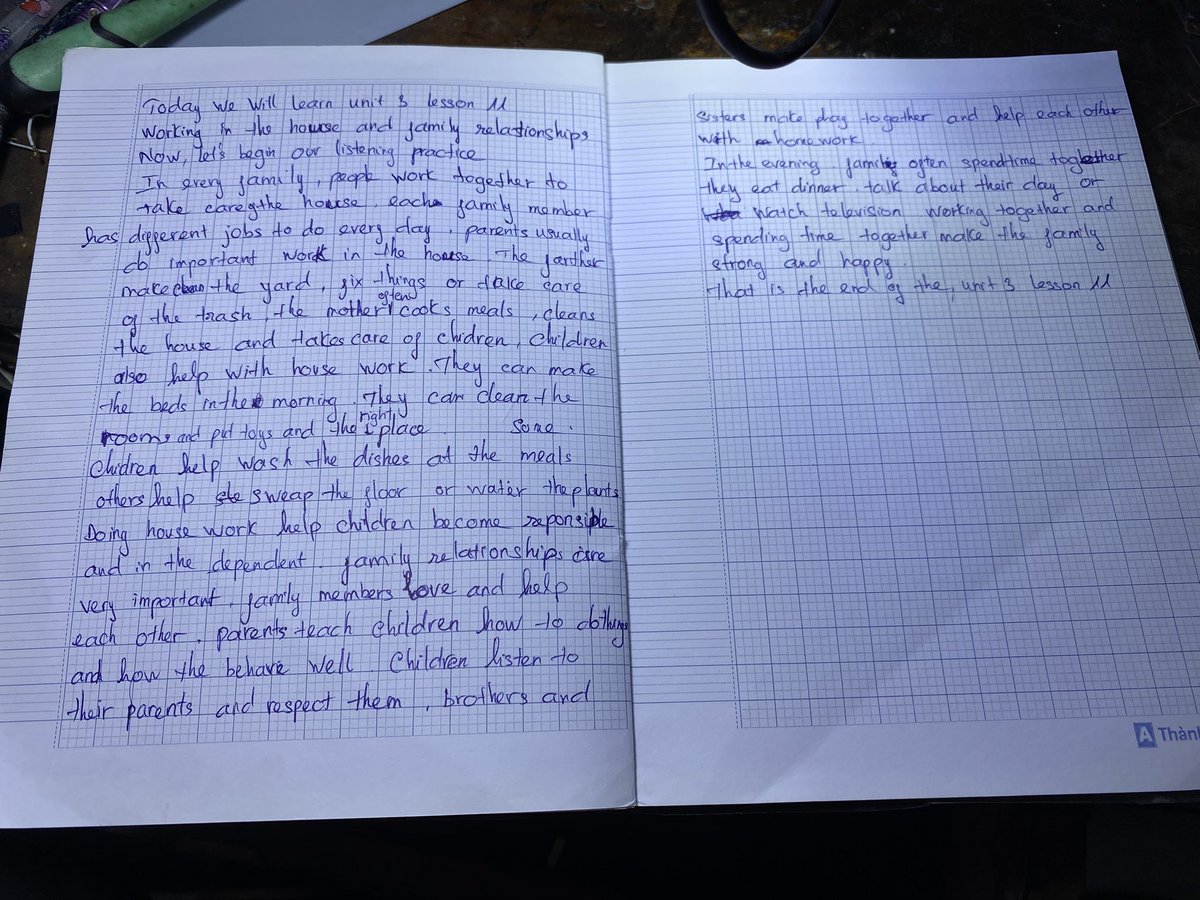 Today we will learn unit 3 lesson 11
working in the house and family relationships
Now, let's begin our listening practice
In every family, people work together to
take care of the house. each family member
has different jobs to do every day. parents usually
do important work in the house. The farther
make clean the yard, fix things or take care
of the trash. the mother often cooks meals, cleans
the house and takes care of chidren, children
also help with house work. They can make
the beds in the morning. They can clean the
rooms and put toys and the right place. Some.
chidren help wash the dishes at the meals
others help sweap the floor or water the plants
Doing house work help children become reponsible
and in the dependent. family relationships are
very important. family members love and help
each other. parents teach children how to do things
and how the behave well. children listen to
their parents and respect them. brothers and
sisters make play together and help each other
with homework.
In the evening. family often spend time together
they eat dinner. talk about their day or
watch television working together and
spending time together make the family
strong and happy.
That is the end of the, unit 3 lesson 11
A Thành